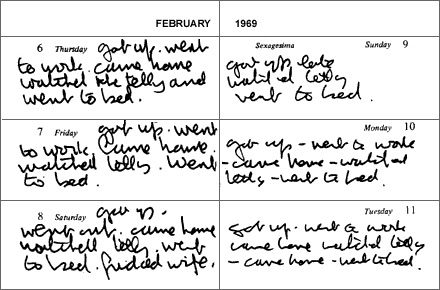 FEBRUARY 1969
6 Thursday got up. went
to work. came home
watched the telly and
went to bed.
7 Friday got up. went
to work. Came home.
watched telly. Went
to bed.
8 Saturday got up.
went out. came home
watched telly. went
to bed. fridded wife.
Sexagesima Sunday 9
got up late
watched telly
went to bed.
Monday 10
got up - went to work
- came home - watched
telly - went to bed.
Tuesday 11
got up. went to work
came home watched telly
- came home - went to bed.